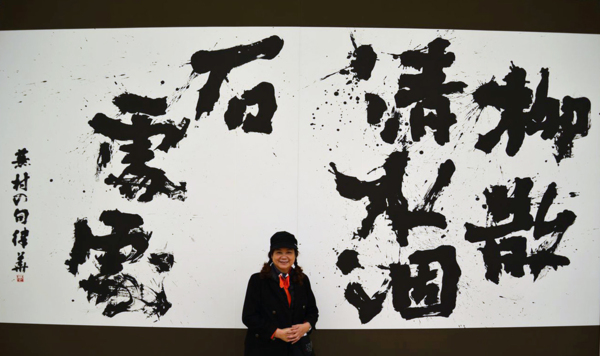 柳散
清水涸
石
處處
蕪村の句